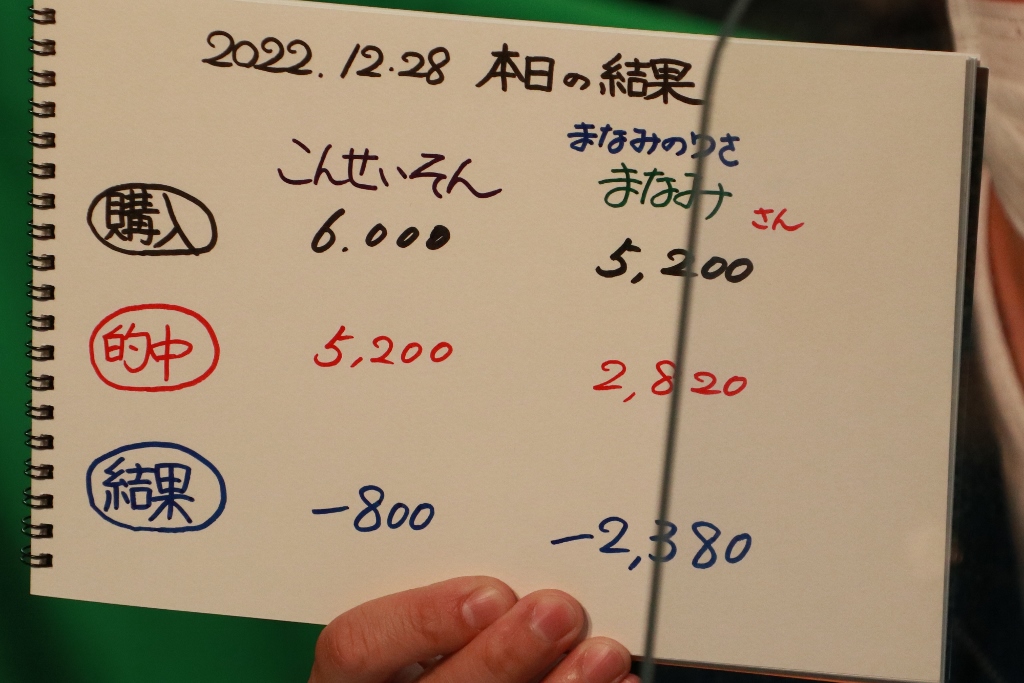 2022.12.28 本日の結果
まなみのりさ
こんせいそん まなみ さん
購入 6.000 5,200
的中 5,200 2,820
結果 -800 -2,380